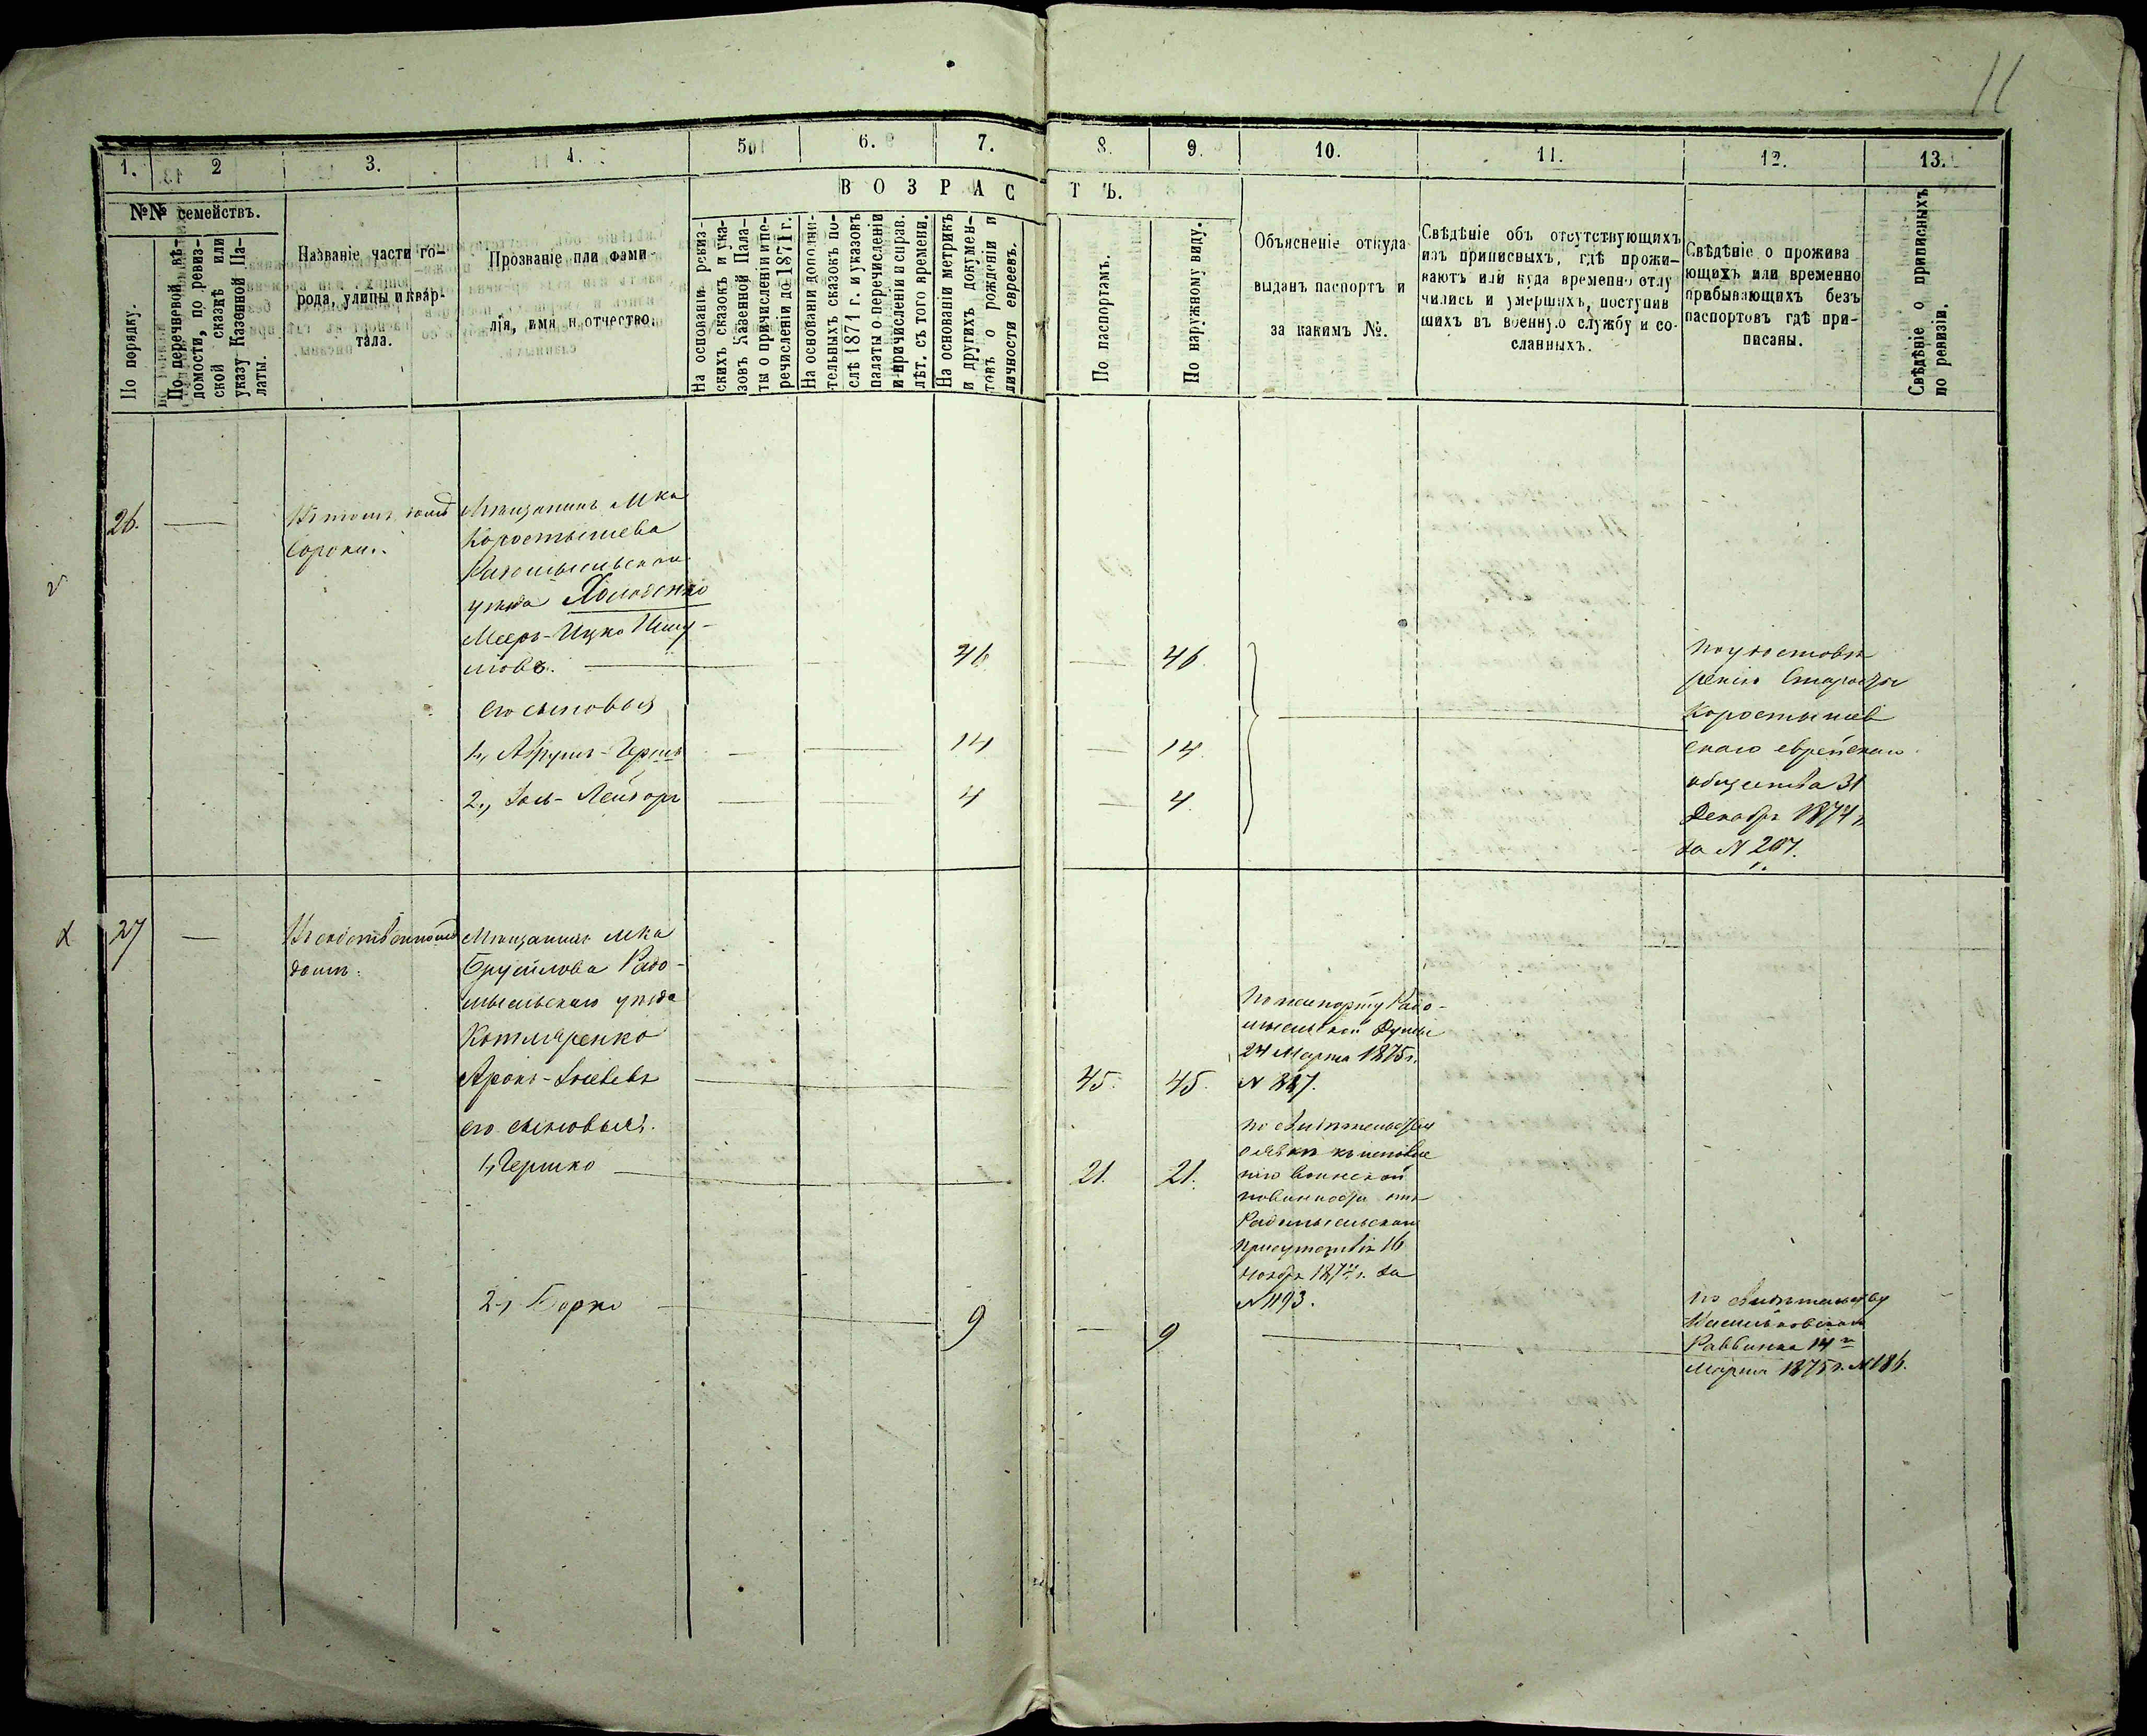 11
1. 2 3. 4. 5 6. 7. 8. 9. 10. 11. 12. 13.
ВОЗРАСТЪ.
№№ семействъ.
По порядку.
По перечневой вѣ-
домости, по ревиз-
ской сказкѣ или
указу Казенной Па-
латы.
Названіе части го-
рода, улицы и квар-
тала.
Прозваніе или фами-
лія, имя и отчество.
На основаніи ревиз-
скихъ сказокъ и ука-
зовъ Казенной Пала-
ты о причисленіи и пе-
речисленіи до 1871 г.
На основаніи дополни-
тельныхъ сказокъ по-
слѣ 1871 г. и указовъ
палаты о перечисленіи
и причисленіи и справ.
лѣт. съ того времени.
На основаніи метрикъ
и другихъ докумен-
товъ о рожденіи и
личности евреевъ.
По паспортамъ.
По наружному виду.
Объясненіе откуда
выданъ паспортъ и
за какимъ №.
Свѣдѣніе объ отсутствующихъ
изъ приписныхъ, гдѣ прожи-
ваютъ или куда временно отлу
чились и умершихъ, поступив
шихъ въ военную службу и со-
сланныхъ.
Свѣдѣніе о прожива
ющихъ или временно
прибывающихъ безъ
паспортовъ гдѣ при-
писаны.
Свѣдѣніе о приписныхъ
по ревизіи.
26.
Въ томъ домѣ
Сороки.
Мѣщанинъ мка
Коростышева
Радомысльскаго
уѣзда
Мееръ-Ицко
46 46
его сыновья
1, Абрумъ-Герш 14 14
2, Лейзоръ 4 4
По удостовѣ
ренію Старосты
Коростышев
скаго еврейскаго
общества 31
Декабря 1874 г.
за N 207.
27
Въ собственномъ
домѣ.
Мѣщанинъ мка
Брусилова Радо-
мысльскаго уѣзда
Котляренко
Аронъ- 45. 45.
его сыновья.
1, Гершко 21. 21.
2, Борко 9 9
По паспорту Радо-
мысльской Думы
24 Марта 1875 г.
N
по свидѣтельству
о явкѣ къ исполне
нію воинской
повинности изъ
Радомысльскаго
присутствія 16
Ноября 1874 г. за
N 1193.
по свидѣтельству
Васильковскаго
Раввина 14 г
Марта 1875 г. N 186.